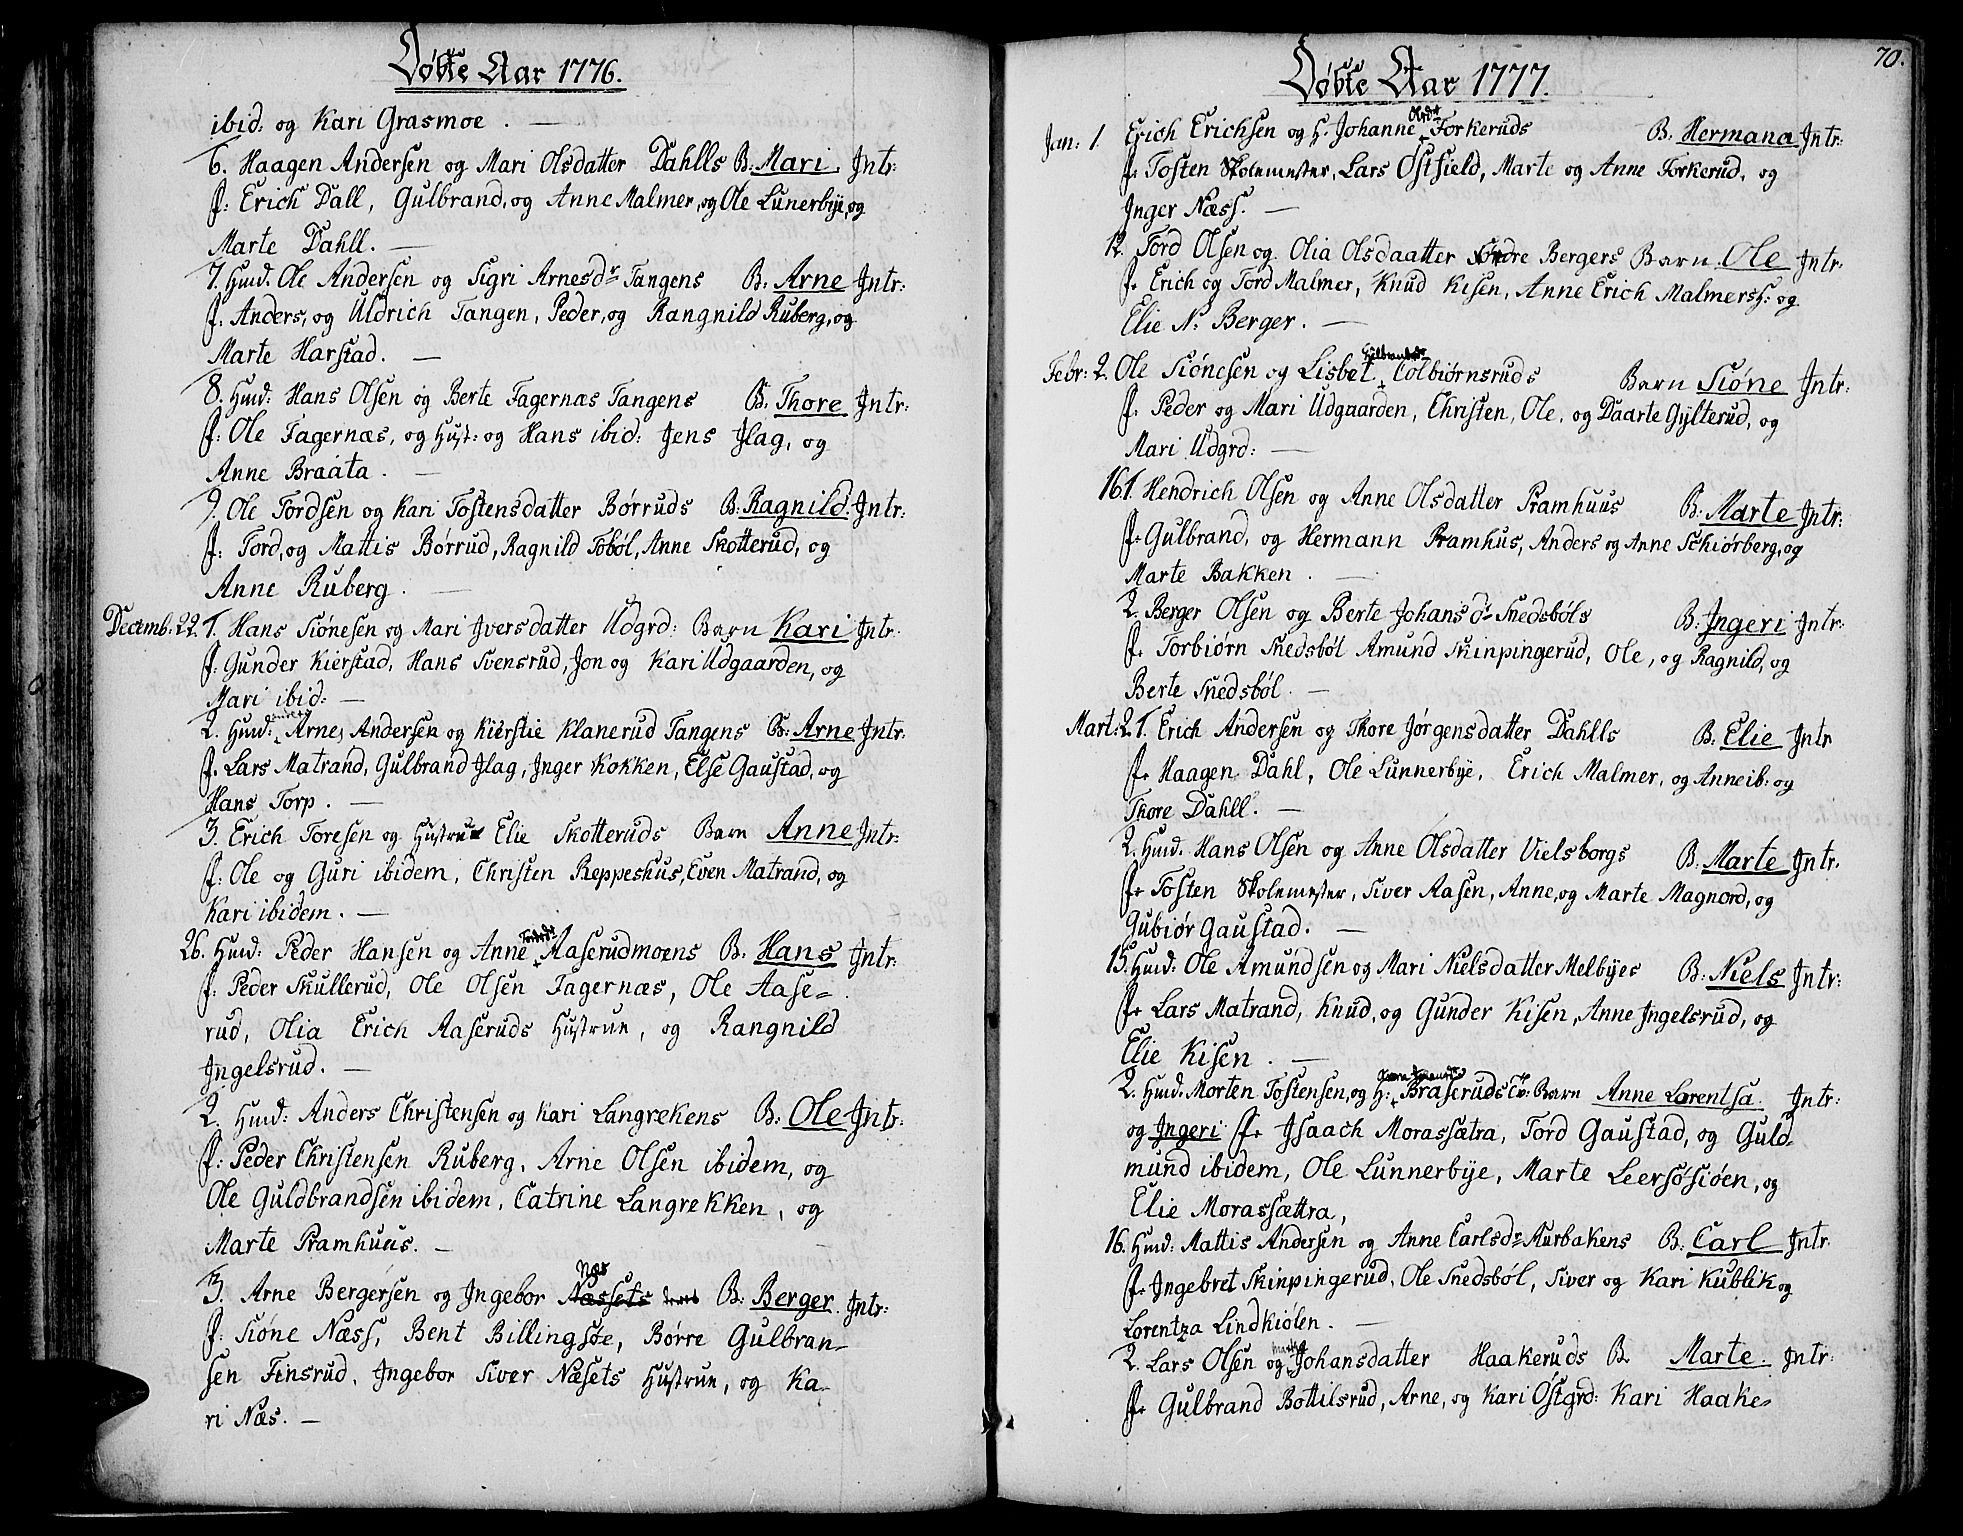 Døbte Aar 1776.
ibid: og Kari Grasmoe. —
6. Haagen Andersen og Mari Olsdatter Dahlls B. Mari Intr:
f: Erich Dall, Gulbrand, og Anne Malmer, og Ole Lunerbye, og
Marte Dahll. —
7. Hmd. Ole Andersen og Sigri Arnesdr Tangens B: Arne Intr:
f: Anders, og Uldrich Tangen, Peder, og Rangnild Ruberg, og
Marte Harstad. —
8. Hmd: Hans Olsen og Berte Fagernæs Tangens B: Thore Intr:
f: Ole Fagernæs, og Hust: og Hans ibid: Jens Jlag, og
Anne Braata. —
9. Ole Tordsen og Kari Tostensdatter Børruds B: Ragnild. Intr:
f: Tord, og Mattis Børrud, Ragnild Tobøl, Anne Skotterud, og
Anne Ruberg. —
Decemb: 22. 1. Hans Siønesen og Mari Iversdatter Udgrd: Barn Kari Intr:
f: Gunder Kierstad, Hans Svensrud, Jon og Kari Udgaarden, og
Mari ibid: —
2. Hmd: Arne Andersen og Kierstie Klanerud Tangens B: Arne Intr:
f. Lars Matrand, Gulbrand Jlag, Inger Kokken, Else Gaustad, og
Hans Torp. —
3. Erich Toresen og Hustrue Elie Skotteruds Barn Anne Intr:
f: Ole og Guri ibidem, Christen Reppeshus, Even Matrand, og
Kari ibidem. —
26. Hmd: Peder Hansen og Anne Tordsdr Aaserudmoens B: Hans Intr:
f: Peder Skullerud, Ole Olsen Fagernæs, Ole Aase=
rud, Olia Erich Aaseruds Hustrue, og Rangnild
Ingelsrud. —
2. Hmd: Anders Christensen og Kari Langrekens B: Ole Intr:
f: Peder Christensen Ruberg, Arne Olsen ibidem, og
Ole Guldbrandsen ibidem, Catrine Langrekken, og
Marte Pramhuus. —
3. Arne Bergersen og Ingebor Næssets Næs B: Berger. Intr:
f: Siøne Næss, Bent Billingsøe, Børre Gulbran=
sen Finsrud, Ingebor Siver Næsets Hustrue, og Ka=
ri Næs. —
70.
Døbte Aar 1777.
Jan: 1. Erich Erichsen og H. Johanne Olsdr Torkeruds B: Hermana Intr:
f. Tosten Skolemester, Lars Østfield, Marte og Anne Torkerud, og
Inger Næss. —
12. Tord Olsen og Olia Olsdaatter Søndre Bergers Barn Ole Intr:
f. Erich og Tord Malmer, Knud Kisen, Anne Erich Malmers H: og
Elie N: Berger. —
Febr: 2. Ole Siønesen og Lisbet Colbiørnsruds Barn Siøne Intr:
f. Peder og Mari Udgaarden, Christen, Ole, og Daarte Gylterud, og
Mari Udgrd: —
16. 1. Hendrich Olsen og Anne Olsdatter Pramhuus B: Marte Intr:
f. Gulbrand, og Hermann Pramhus, Anders og Anne Schiørberg, og
Marte Bakken. —
2. Berger Olsen og Berte Johansdr Snedsbøls B: Ingeri Intr:
f. Torbiørn Snedsbøl Amund Skinpingerud, Ole, og Ragnild, og
Berte Snedsbøl. —
Mart: 2. 1. Erich Andersen og Thore Jørgensdatter Dahlls B: Elie Intr
f. Haagen Dahl, Ole Lunnerbye, Erich Malmer, og Anne ib: og
Thore Dahll. —
2. Hmd. Hans Olsen og Anne Olsdatter Vielsborgs B: Marte Intr.
f. Tosten Skolemester, Siver Aasen, Anne, og Marte Magnord, og
Gubiør Gaustad. —
15. Hmd: Ole Amundsen og Mari Nielsdatter Melbyes B: Niels Intr:
f. Lars Matrand, Knud, og Gunder Kisen, Anne Ingelsrud, og
Elie Kisen. —
2. Hmd. Morten Tostensen, og H: Braseruds Tv: Barn Anne Lorentsa. Intr:
og Ingeri f. Isaach Morassætra, Tord Gaustad, og Guld=
mund ibidem, Ole Lunnerbye, Marte Leersøsiøen, og
Elie Morassættra,
16. Hmd: Mattis Andersen og Anne Carlsdr Aurbakens B: Carl Intr
f. Ingebret Skinpingerud, Ole Snedsbøl, Siver og Kari Kublik og
Lorentza Lindkiølen. —
2. Lars Olsen og Marthe Johansdatter Haakeruds B. Marte. Intr:
f. Gulbrand Bottilsrud, Arne, og Kari Østgrd: Kari Haake=